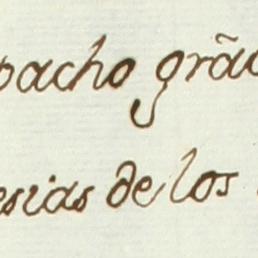 pacho grãc
esias de los